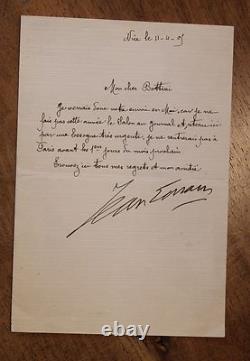 Nice le 11-4-05
Mon cher Bottini
Je remets donc votre envoi en Mai, car je ne
fais pas cette année le Salon au journal et retenu ici
par une besogne très urgente, je ne rentrerai pas à
Paris avant les 1ers jours du mois prochain
Trouvez ici tous mes regrets et mon amitié
Jean Lorrain